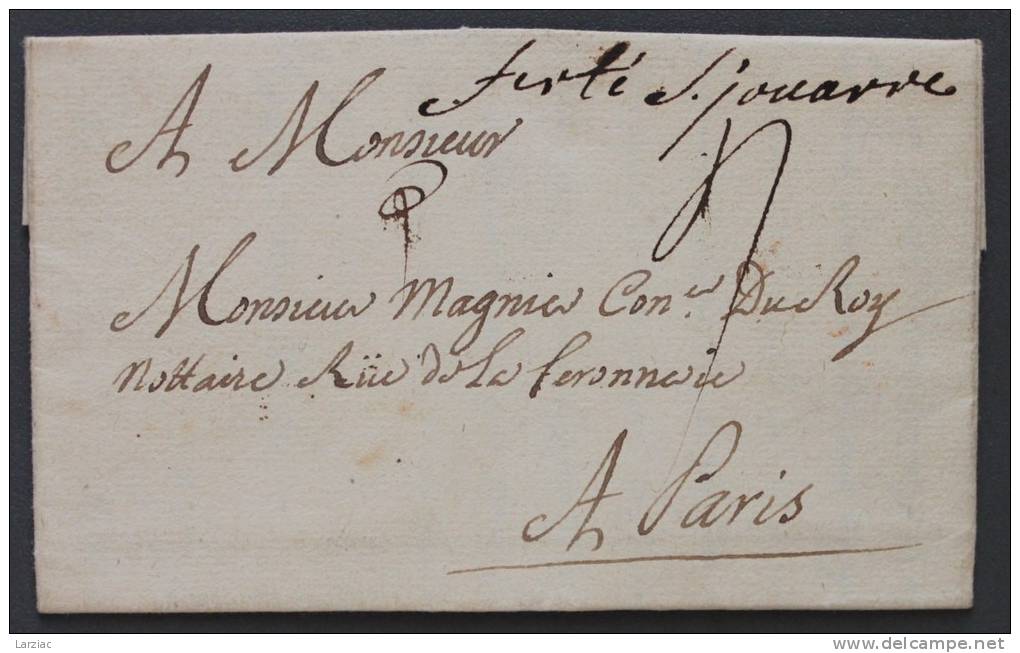 ferté S. jouarre
A Monsieur
Monsieur Magnier Con.er Du Roy
Nottaire Rüe de la feronnerie
A Paris
Larziac
www.delcampe.net